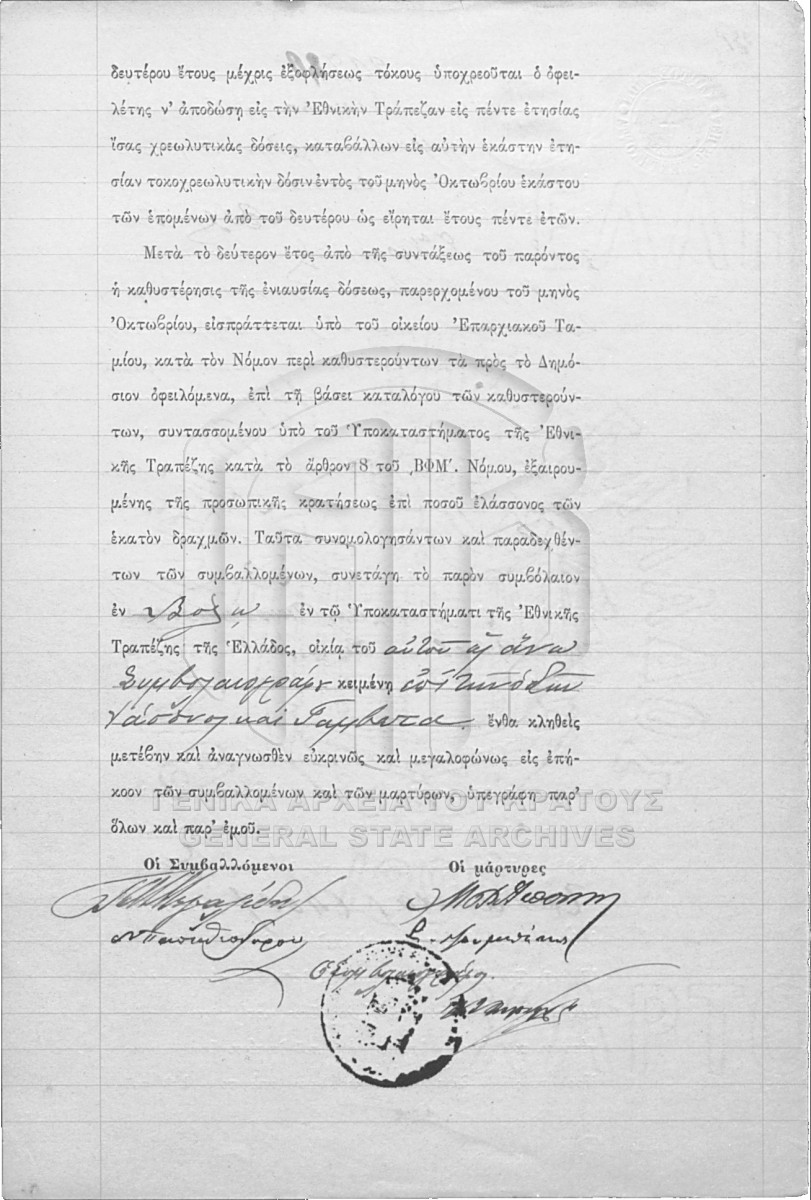 δευτέρου ἔτους μέχρις ἐξοφλήσεως τόκους ὑποχρεοῦται ὁ ὀφει-
λέτης ν' ἀποδώσῃ εἰς τὴν Ἐθνικὴν Τράπεζαν εἰς πέντε ἐτησίας
ἴσας χρεωλυτικὰς δόσεις, καταβάλλων εἰς αὐτὴν ἑκάστην ἐτη-
σίαν τοκοχρεωλυτικὴν δόσιν ἐντὸς τοῦ μηνὸς Ὀκτωβρίου ἑκάστου
τῶν ἑπομένων ἀπὸ τοῦ δευτέρου ὡς εἴρηται ἔτους πέντε ἐτῶν.
Μετὰ τὸ δεύτερον ἔτος ἀπὸ τῆς συντάξεως τοῦ παρόντος
ἡ καθυστέρησις τῆς ἐνιαυσίας δόσεως, παρερχομένου τοῦ μηνὸς
Ὀκτωβρίου, εἰσπράττεται ὑπὸ τοῦ οἰκείου Ἐπαρχιακοῦ Τα-
μίου, κατὰ τὸν Νόμον περὶ καθυστερούντων τὰ πρὸς τὸ Δημό-
σιον ὀφειλόμενα, ἐπὶ τῇ βάσει καταλόγου τῶν καθυστερούν-
των, συντασσομένου ὑπὸ τοῦ Ὑποκαταστήματος τῆς Ἐθνι-
κῆς Τραπέζης κατὰ τὸ ἄρθρον 8 τοῦ ͵ΒΦΜ΄. Νόμου, ἐξαιρου-
μένης τῆς προσωπικῆς κρατήσεως ἐπὶ ποσοῦ ἐλάσσονος τῶν
ἑκατὸν δραχμῶν. Ταῦτα συνομολογησάντων καὶ παραδεχθέν-
των τῶν συμβαλλομένων, συνετάγη τὸ παρὸν συμβόλαιον
ἐν Βόλῳ ἐν τῷ Ὑποκαταστήματι τῆς Ἐθνικῆς
Τραπέζης τῆς Ἑλλάδος, οἰκίᾳ τοῦ
κειμένῃ ἐπὶ τῆς ὁδοῦ
Ἰάσονος καὶ Γαμβέτα ἔνθα κληθεὶς
μετέβην καὶ ἀναγνωσθὲν εὐκρινῶς καὶ μεγαλοφώνως εἰς ἐπή-
κοον τῶν συμβαλλομένων καὶ τῶν μαρτύρων, ὑπεγράφη παρ'
ὅλων καὶ παρ' ἐμοῦ.
ΓΕΝΙΚΑ ΑΡΧΕΙΑ ΤΟΥ ΚΡΑΤΟΥΣ
GENERAL STATE ARCHIVES
Οἱ Συμβαλλόμενοι Οἱ μάρτυρες
Ὁ Συμβολαιογράφος